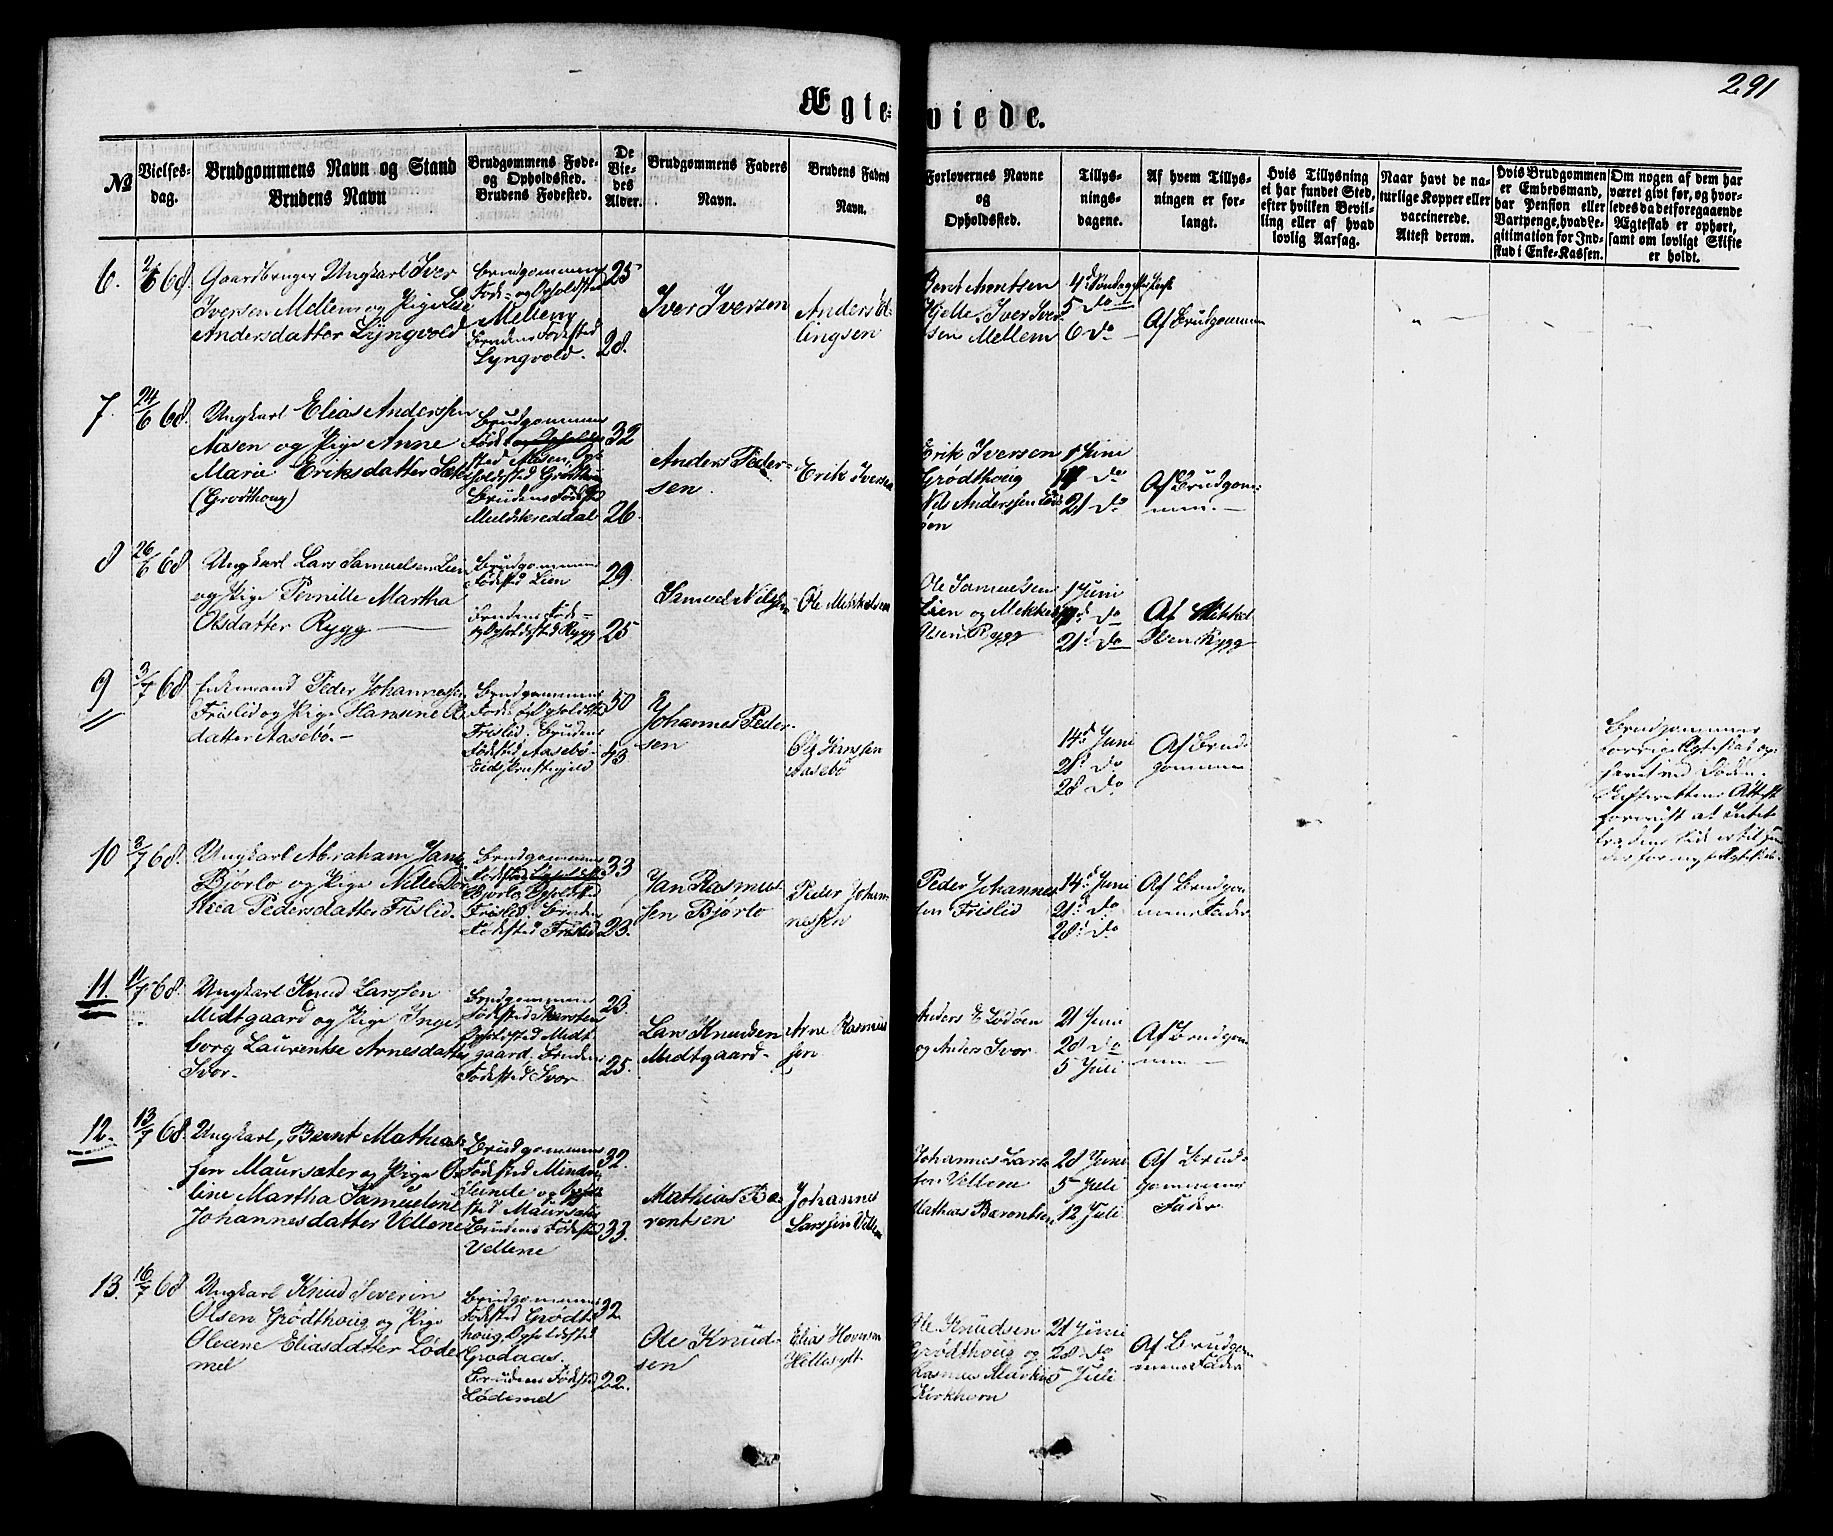 291
Ægteviede.
No
Vielses-
dag.
Brudgommens Navn og Stand
Brudens Navn
Brudgommens Føde-
og Opholdssted.
Brudens Fødested.
De
Vie-
des
Alder.
Brudgommens Faders
Navn.
Brudens Faders
Navn.
Forlovernes Navne
og
Opholdssted.
Tillys-
nings-
dagene.
Af hvem Tillys-
ningen er for-
langt.
Hvis Tillysning
ei har fundet Sted,
efter hvilken Bevil-
ling eller af hvad
lovlig Aarsag.
Naar havt de na-
turlige Kopper eller
vaccinerede.
Attest derom.
Hvis Brudgommen
er Embedsmand,
har Pension eller
Vartpenge, hvad Le-
gitimation for Ind-
skud i Enke-Kassen.
Om nogen af dem har
været givt før, og hvor-
ledes da det foregaaende
Ægteskab er ophørt,
samt om lovligt Skifte
er holdt.
6. 68.
Gaardbruger Ungkarl Iver
Iversen Mellem og Pige
Andersdatter Lyngvold
Brudgommens
Føde- og Opholdsted
Mellem
Brudens Fødested
Lyngvold.
25
28.
Iver Iversen
Anders El-
lingsen
Bernt Berntsen
Hjelle, Iver Iver-
sen Mellem
4d Søndag
5 do
6 do
Af Brudgommen
7. 24/6 68.
Ungkarl Elias Anderssen
Aasen og Pige Anne
Marie Eriksdatter
(Grødthoug)
Brudgommens
Fødested
Aasen, Op-
holdsted Grødthoug
Brudens Fødested
Muldskreddal
32
26.
Anders Peder-
sen
Erik Iversen
Erik Iversen
Grødthoug
Nils Anderssen
1 Juni
14 do
21 do
Af Brudgom-
men.
8 26/6 68
Ungkarl Lars Samuelsen Lien
og Pige Pernille Martha
Olsdatter Rygg
Brudgommens
Fødested Lien
Brudens Føde-
og Opholdsted Rygg
29.
25
Samuel Nilsen
Ole Mikkelsen
Ole Samuelsen
Lien og Mikkel
Olsen Rygg
1 Juni
14d do
21d do
Af Mikkel
Olsen Rygg
9 3/7 68.
Enkemand Peder Johannessen
Frislid og Pige Hansine Ole
datter Aasebø.
Brudgommens
Føde- og Opholdsted
Frislid. Brudens
Fødested Aasebø
Eids Præstegjeld
50
43
Johannes Peder-
sen
Ole
Aasebø
14d Juni
21d do
28 do
Af Brud-
gommen
Brudgommens
forrige Ægteskab op-
hævet ved Døden.
Skifterettens Attest
forevist at Intet
fra dens Side er til Hin-
der for nyt Ægteskab.
10 3/7 68.
Ungkarl Abraham Jansen
Bjørlo og Pige Nille Dor-
thea Pedersdatter Frislid.
Brudgommens
Fødested
Bjørlo Opholdsted
Frislid. Brudens
Fødested Frislid
33
23.
Jan Rasmus-
sen Bjørlo
Peder Johan-
nessen
Peder Johannes-
sen Frislid
14d Juni
21d do
28d do
Af Brudgom-
mens Fader
11. 11/7 68.
Ungkarl Knud Larssen
Midtgaard og Pige Inge-
borg Laurentse Arnesdatter
Ivor.
Brudgommens
Fødested
Opholdsted Midt-
gaard. Brudens
Fødested Ivor
23.
25.
Lars Knudsen
Midtgaard
Arne Rasmus-
sen
Anders E Lødøen
og Anders Ivor.
21 Juni
28 do
5 Juli
Af Brudgom-
men
12. 13/7 68
Ungkarl, Bernt Mathias-
sen Maursæter og Pige O-
line Martha Samueline
Johannesdatter Vellene
Brudgommens
Fødested Mindre-
sunde og Ophold-
sted Maursæter
Brudens Fødested
Vellene
32.
33.
Mathias Be-
rentsen
Johannes
Larssen Vellene
Johannes Lars-
sen Vellene
Mathias Barentsen
28 Juni
5 Juli
12 Juli
Af Brud-
gommens
Fader
13. 16/7 68
Ungkarl Knud Severin
Olsen Grødthoug og Pige
Oleane Eliasdatter Løde-
mel
Brudgommens
Fødested Grødt-
houg, Opholdsted
Grodaas.
Brudens Fødested
Lødemel
32
22.
Ole Knud-
sen
Elias Hovensen
Hellesylt
Ole Knudsen
Grødthoug og
Rasmus Markus
Kirkhorn
21 Juni
28 do
5 Juli
Af Brudgom-
mens Fader